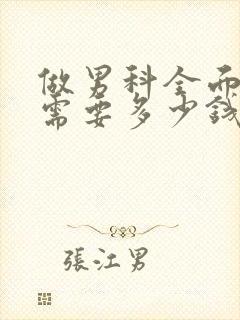 做男科全面
需要多少钱
張江男